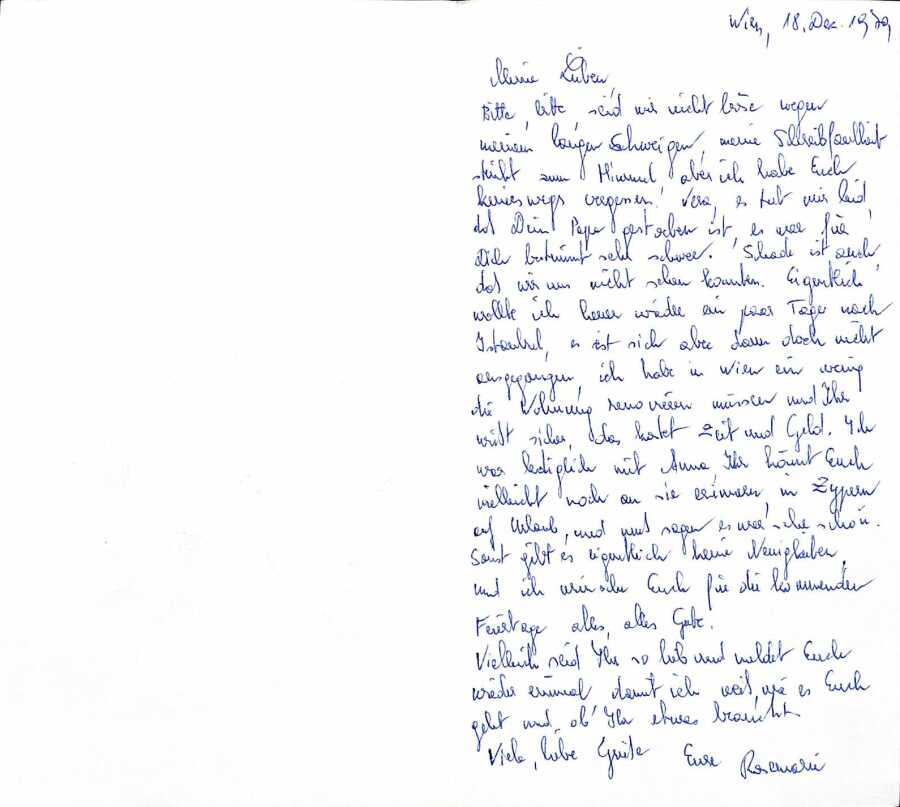 Wien, 18. Dez. 1979
Meine Lieben,
Bitte, bitte, seid mir nicht böse wegen
meinem langen Schweigen, meine Schreibfaulheit
stinkt zum Himmel aber ich habe Euch
keineswegs vergessen! Vera, es tut mir leid
daß Dein Papa gestorben ist, es war für
Dich bestimmt sehr schwer. Schade ist auch
daß wir uns nicht sehen konnten. Eigentlich
wollte ich heuer wieder ein paar Tage nach
Istanbul, es ist sich aber dann doch nicht
ausgegangen, ich habe in Wien ein wenig
die Wohnung renovieren müssen und Ihr
wißt sicher, das kostet Zeit und Geld. Ich
war lediglich mit Anna, Ihr könnt Euch
vielleicht noch an sie erinnern, in Zypern
auf Urlaub, und muß sagen es war sehr schön.
Sonst gibt es eigentlich keine Neuigkeiten,
und ich wünsche Euch für die kommenden
Feiertage alles, alles Gute.
Vielleicht seid Ihr so lieb und meldet Euch
wieder einmal damit ich weiß, wie es Euch
geht und ob Ihr etwas braucht.
Viele, liebe Grüße Eure Rosemarie